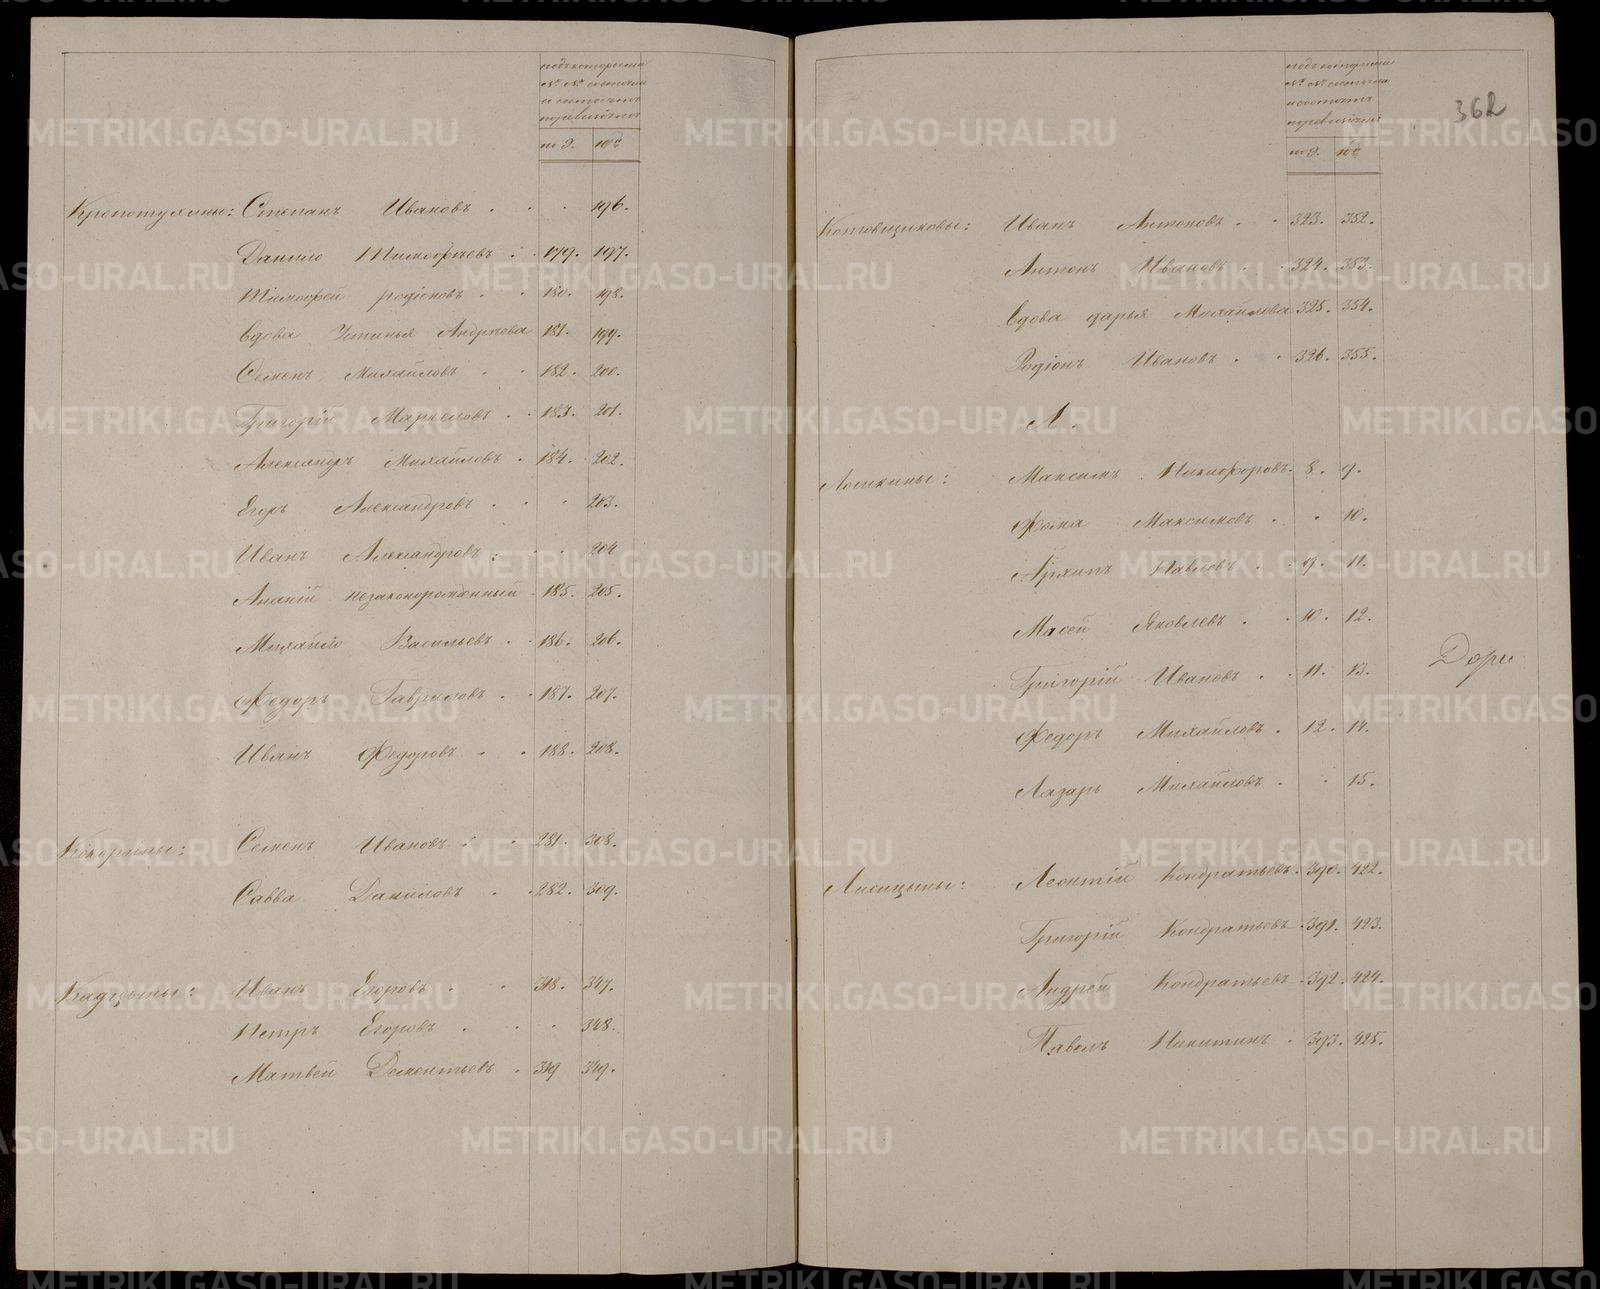 подъ которыми
№ № состояли
и состоятъ
по ревизіямъ
по 9. 10й
Кропотухины: Степанъ Ивановъ . . . 196.
Данило Тимофѣевъ . . 179. 197.
Тимофей родіоновъ . . 180. 198.
вдова Устинья Андреева 181. 199.
Семенъ Михайловъ . . 182. 200.
Григорій Маркеловъ . . 183. 201.
Александръ Михайловъ . 184. 202.
Егоръ Александровъ . . . 203.
Иванъ Александровъ . . . 204
Ананій незаконорожденный . 185. 205.
Михайло Васильевъ . . 186. 206.
Федоръ Гавриловъ . . 187. 207.
Иванъ Федоровъ . . 188. 208.
Кокорины: Семенъ Ивановъ . . 281. 308.
Савва Даниловъ . . 282. 309.
Кадцыны: Иванъ Егоровъ . . 318. 347.
Петръ Егоровъ . . . 348.
Матвей Дементьевъ . 319 349.
подъ которыми
№ № состояли
и состоятъ
по ревизіямъ
по 9. 10й
362
Котовщиковы: Иванъ Антоновъ . . 323. 352.
Антонъ Ивановъ . . 324. 353.
вдова дарья Михайлова 325. 354.
Родіонъ Ивановъ . . 326. 355.
Л.
Ломкины: Максимъ Никифоровъ . 8. 9.
Фома Максимовъ . . 10.
Архипъ Павловъ . . 9. 11.
Масей Яковлевъ . . 10. 12.
Григорій Ивановъ . . 11. 13.
Федоръ Михайловъ . 12. 14.
Лазарь Михайловъ . . 15.
Лисицыны: Леонтій Кондратьевъ . 390. 422.
Григорій Кондратьевъ . 391. 423.
Андрей Кондратьевъ . 392. 424.
Павелъ Никитинъ . 393. 425.
METRIKI.GASO-URAL.RU